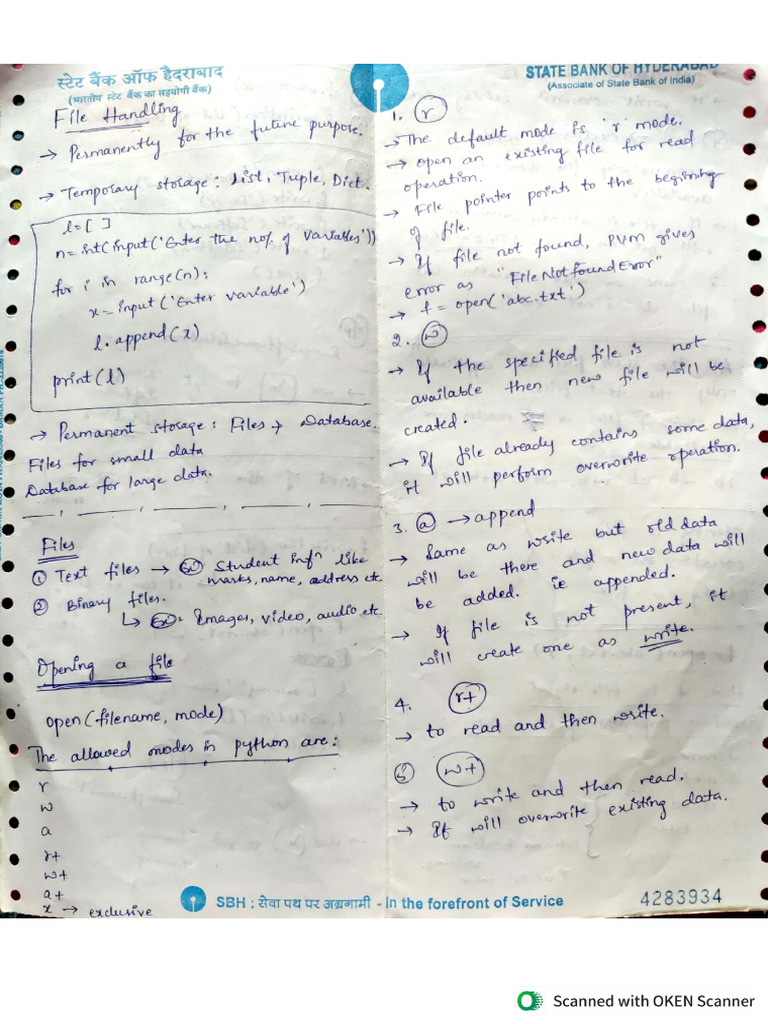 स्टेट बैंक ऑफ हैदराबाद
(भारतीय स्टेट बैंक का सहयोगी बैंक)
File Handling
→ Permanently for the future purpose.
→ Temporary storage: List, Tuple, Dict.
l=[ ]
n=int(input('Enter the no/. of variables'))
for i in range(n):
x=input('Enter variable')
l.append(x)
print(l)
→ Permanent storage: Files → Database.
Files for small data
Database for large data.
Files
① Text files → Student infⁿ like
marks, name, address etc.
② Binary files.
↳ Images, video, audio etc.
Opening a file
open(filename, mode)
The allowed modes in python are:
r
w
a
r+
w+
a+
x → exclusive
STATE BANK OF HYDERABAD
(Associate of State Bank of India)
1. r
→ The default mode is 'r' mode.
→ open an existing file for read
operation.
→ File pointer points to the begining
of file.
→ If file not found, PVM gives
error as "FileNotFoundError"
→ f = open('abc.txt')
2. w
→ If the specified file is not
available then new file will be
created.
→ If file already contains some data,
it will perform overwrite operation.
3. a → append
→ Same as write but old data
will be there and new data will
be added. ie appended.
→ If file is not present, it
will create one as write.
4. r+
→ to read and then write.
⑤ w+
→ to write and then read.
→ It will overwrite existing data.
SBH : सेवा पथ पर अग्रगामी - In the forefront of Service
4283934
Scanned with OKEN Scanner